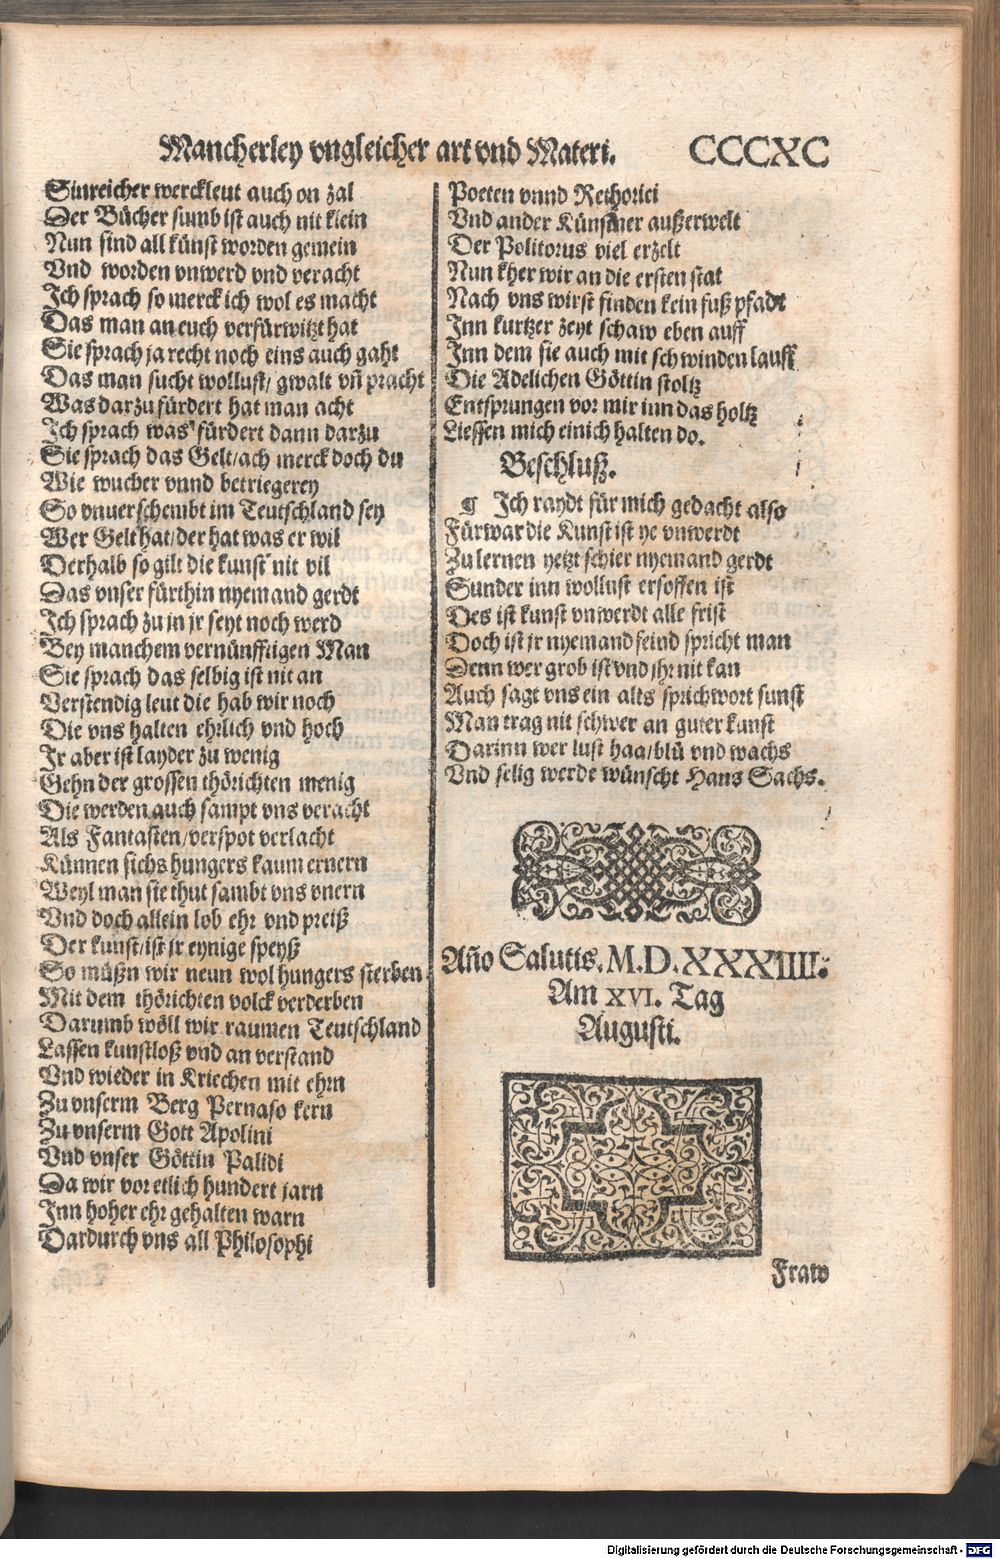 Mancherley vngleicher art vnd Materi. CCCXC
Sinreicher werckleut auch on zal
Der Bücher sumb ist auch nit klein
Nun sind all künst worden gemein
Vnd worden vnwerd vnd veracht
Ich sprach so merck ich wol es macht
Das man an euch verfürwitzt hat
Sie sprach ja recht noch eins auch gaht
Das man sucht wollust/ gwalt vñ pracht
Was darzu fürdert hat man acht
Ich sprach was fürdert dann darzu
Sie sprach das Gelt/ach merck doch du
Wie wucher vnnd betriegerey
So vnuerschembt im Teutschland sey
Wer Gelt hat/der hat was er wil
Derhalb so gilt die kunst nit vil
Das vnser fürthin nyemand gerdt
Ich sprach zu jn jr seyt noch werd
Bey manchem vernünfftigen Man
Sie sprach das selbig ist nit an
Verstendig leut die hab wir noch
Die vns halten ehrlich vnd hoch
Ir aber ist layder zu wenig
Gehn der grossen thörichten menig
Die werden auch sampt vns veracht
Als Fantasten/verspot verlacht
Künnen sichs hungers kaum ernern
Weyl man sie thut sambt vns vnern
Vnd doch allein lob ehr vnd preiß
Der kunst/ist jr eynige speyß
So müßn wir neun wol hungers sterben
Mit dem thörichten volck verderben
Darumb wöll wir raumen Teutschland
Lassen kunstloß vnd an verstand
Vnd wieder in Kriechen mit ehrn
Zu vnserm Berg Pernaso kern
Zu vnserm Gott Apolini
Vnd vnser Göttin Palidi
Da wir vor etlich hundert jarn
Inn hoher ehr gehalten warn
Dardurch vns all Philosophi
Poeten vnnd Rethorici
Vnd ander Künstner außerwelt
Der Politorus viel erzelt
Nun kher wir an die ersten stat
Nach vns wirst finden kein fuß pfadt
Inn kurtzer zeyt schaw eben auff
Inn dem sie auch mit schwinden lauff
Die Adelichen Göttin stoltz
Entsprungen vor mir inn das holtz
Liessen mich einich halten do.
Beschluß.
¶ Ich raydt für mich gedacht also
Fürwar die Kunst ist ye vnwerdt
Zu lernen yetzt schier nyemand gerdt
Sunder inn wollust ersoffen ist
Des ist kunst vnwerdt alle frist
Doch ist jr nyemand feind spricht man
Denn wer grob ist vnd jhr nit kan
Auch sagt vns ein alts sprichwort sunst
Man trag nit schwer an guter kunst
Darinn wer lust haa/blü vnd wachs
Vnd selig werde wünscht Hans Sachs.
Año Salutis. M.D.XXXIIII.
Am XVI. Tag
Augusti.
Fraw
Digitalisierung gefördert durch die Deutsche Forschungsgemeinschaft - DFG